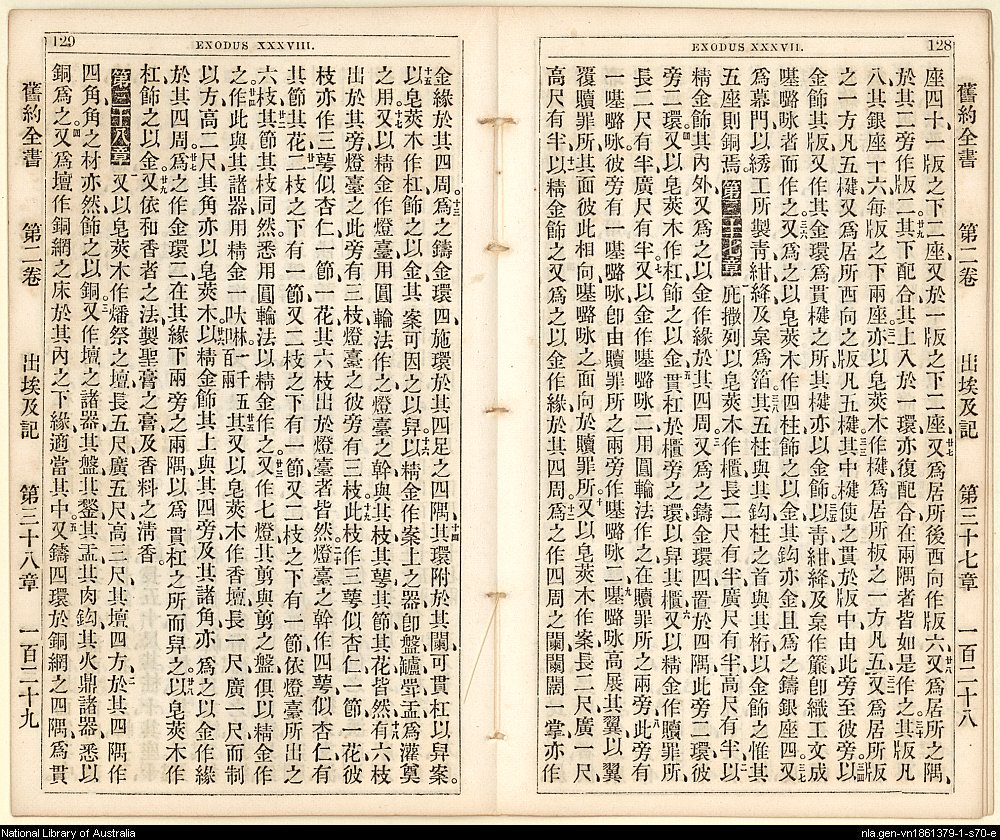 128
EXODUS XXXVII.
舊約全書 第二卷 出埃及記 第三十七章 一百二十八
座四十一版之下二座又於一版之下二座又爲居所後西向作版六又爲居所之隅
於其二旁作版二其下配合其上入於一環亦復配合在兩隅者皆如是作之其版凡
八其銀座十六每版之下兩座亦以皂莢木作楗爲居所板之一方凡五又爲居所版
之一方凡五楗又爲居所西向之版凡五楗其中楗使之貫於版中由此旁至彼旁以
金飾其版又作其金環爲貫楗之所其楗亦以金飾以青紺絳及枲作簾卽織工文成
𠼻㘔咏者而作之又爲之以皂莢木作四柱飾之以金其鈎亦金且爲之鑄銀座四又
爲幕門以綉工所製青紺絳及枲爲箔其五柱與其鈎柱之首與其桁以金飾之惟其
五座則銅焉 第三十七章 庇撒列以皂莢木作櫃長二尺有半廣尺有半高尺有半以
精金飾其內外又爲之以金作緣於其四周又爲之鑄金環四置於四隅此旁二環彼
旁二環又以皂莢木作杠飾之以金貫杠於櫃旁之環以舁其櫃又以精金作贖罪所
長二尺有半廣尺有半又以金作𠼻㘔咏二用圓輪法作之在贖罪所之兩旁此旁有
一𠼻㘔咏彼旁有一𠼻㘔咏卽由贖罪所之兩旁作𠼻㘔咏二𠼻㘔咏高展其翼以翼
覆贖罪所其面彼此相向𠼻㘔咏之面向於贖罪所又以皂莢木作案長二尺廣一尺
高尺有半以精金飾之又爲之以金作緣於其四周爲之作四周之闌闌闊一掌亦作
129
EXODUS XXXVIII.
金緣於其四周爲之鑄金環四施環於其四足之四隅其環附於其闌可貫杠以舁案
以皂莢木作杠飾之以金其案可因之以舁以精金作案上之器卽盤罏斝盂爲灌奠
之用又以精金作燈臺用圓輪法作之燈臺之幹與其枝其萼其節其花皆然有六枝
出於其旁燈臺之此旁有三枝燈臺之彼旁有三枝此枝作三萼似杏仁一節一花彼
枝亦作三萼似杏仁一節一花其六枝出於燈臺者皆然燈臺之幹作四萼似杏仁有
其節其花二枝之下有一節又二枝之下有一節又二枝之下有一節依燈臺所出之
六枝其節其枝同然悉用圓輪法以精金作之又作七燈其剪與剪之盤俱以精金作
之作此與其諸器用精金一㕭啉一千五百兩其又以皂莢木作香壇長一尺廣一尺而制
以方高二尺其角亦以皂莢木以精金飾其上與其四旁及其諸角亦爲之以金作緣
於其四周爲之作金環二在其緣下兩旁之兩隅以爲貫杠之所而舁之以皂莢木作
杠飾之以金又依和香者之法製聖膏之膏及香料之淸香
第三十八章 又以皂莢木作燔祭之壇長五尺廣五尺高三尺其壇四方於其四隅作
四角角之材亦然飾之以銅又作壇之諸器其盤其鏊其盂其肉鈎其火鼎諸器悉以
銅爲之又爲壇作銅網之床於其內之下緣適當其中又鑄四環於銅網之四隅爲貫
舊約全書 第二卷 出埃及記 第三十八章 一百二十九
National Library of Australia
nla.gen-vn1861379-1-s70-e